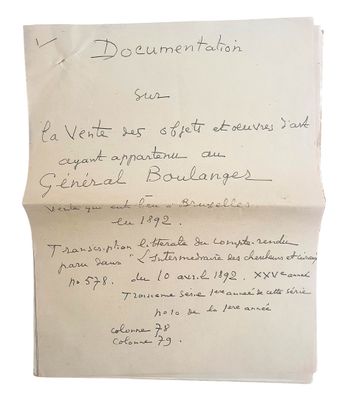 Documentation
sur
la Vente des objets et oeuvres d'art
ayant appartenu au
Général Boulanger
Vente qui eut lieu à Bruxelles
en 1892.
Transcription littérale du compte-rendu
paru dans "L'Intermédiaire des chercheurs et curieux
no 578. du 10 avril 1892. XXVe année
Troisième série 1ère année de cette série
no 10 de la 1ère année
colonne 78
colonne 79.